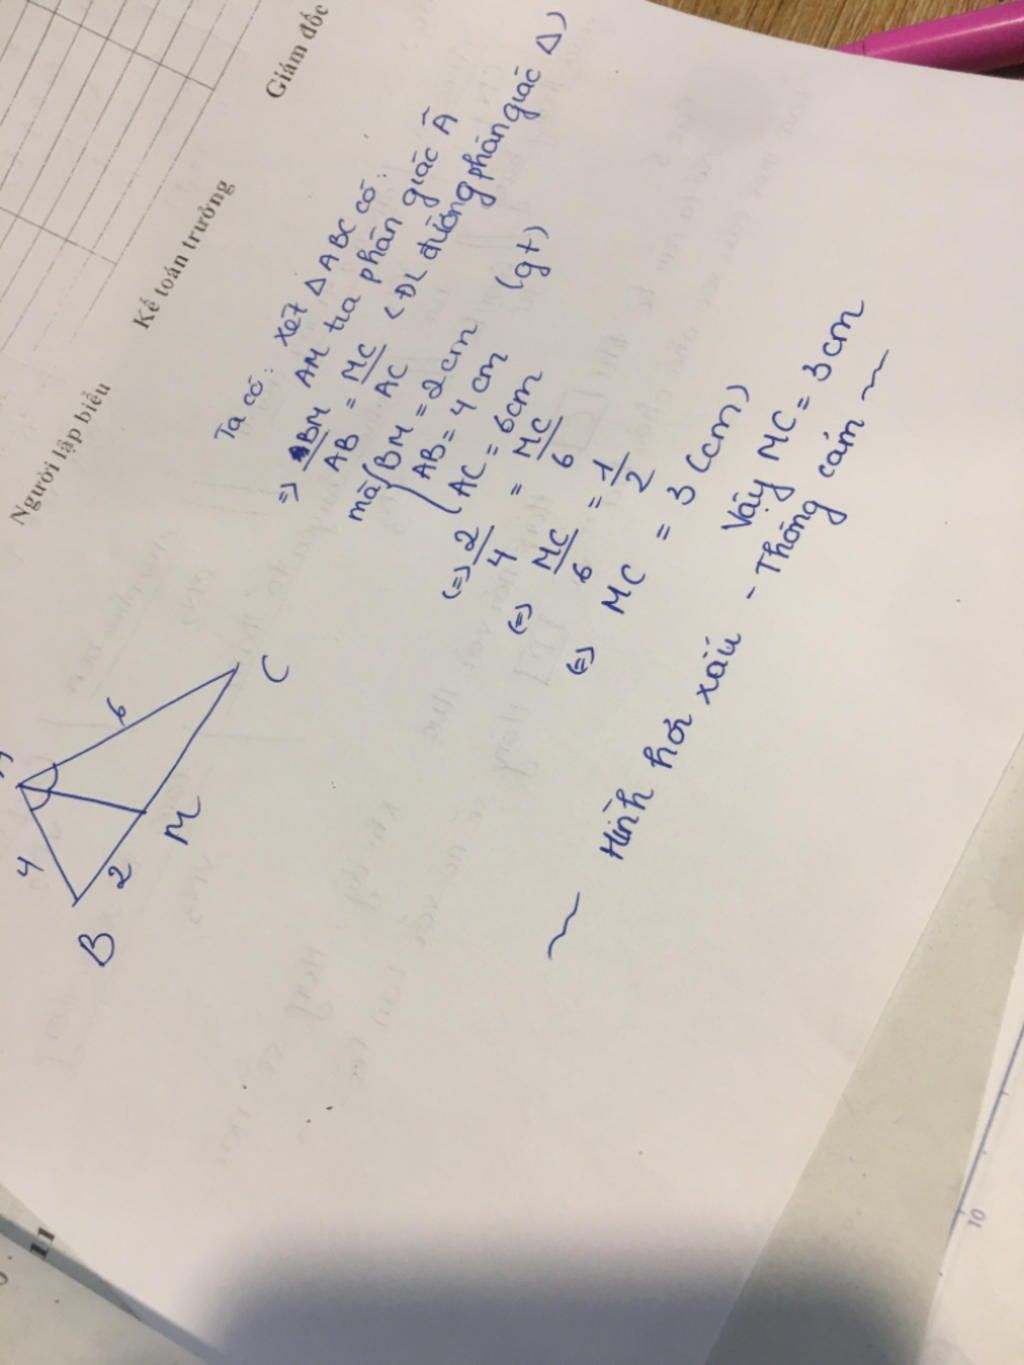 Người lập biểu
Kế toán trưởng
Giám đốc
Ta có: Xét Δ ABC có:
AM tia phân giác Â
=> BM/AB = MC/AC (ĐL đường phân giác Δ)
mà { BM = 2cm
AB = 4 cm (gt)
AC = 6cm
(=) 2/4 = MC/6
(=) MC/6 = 1/2
(=) MC = 3 (cm)
Vậy MC = 3cm
~ Hình hơi xấu - Thông cảm ~
A
4
6
B
2
M
C
11
10